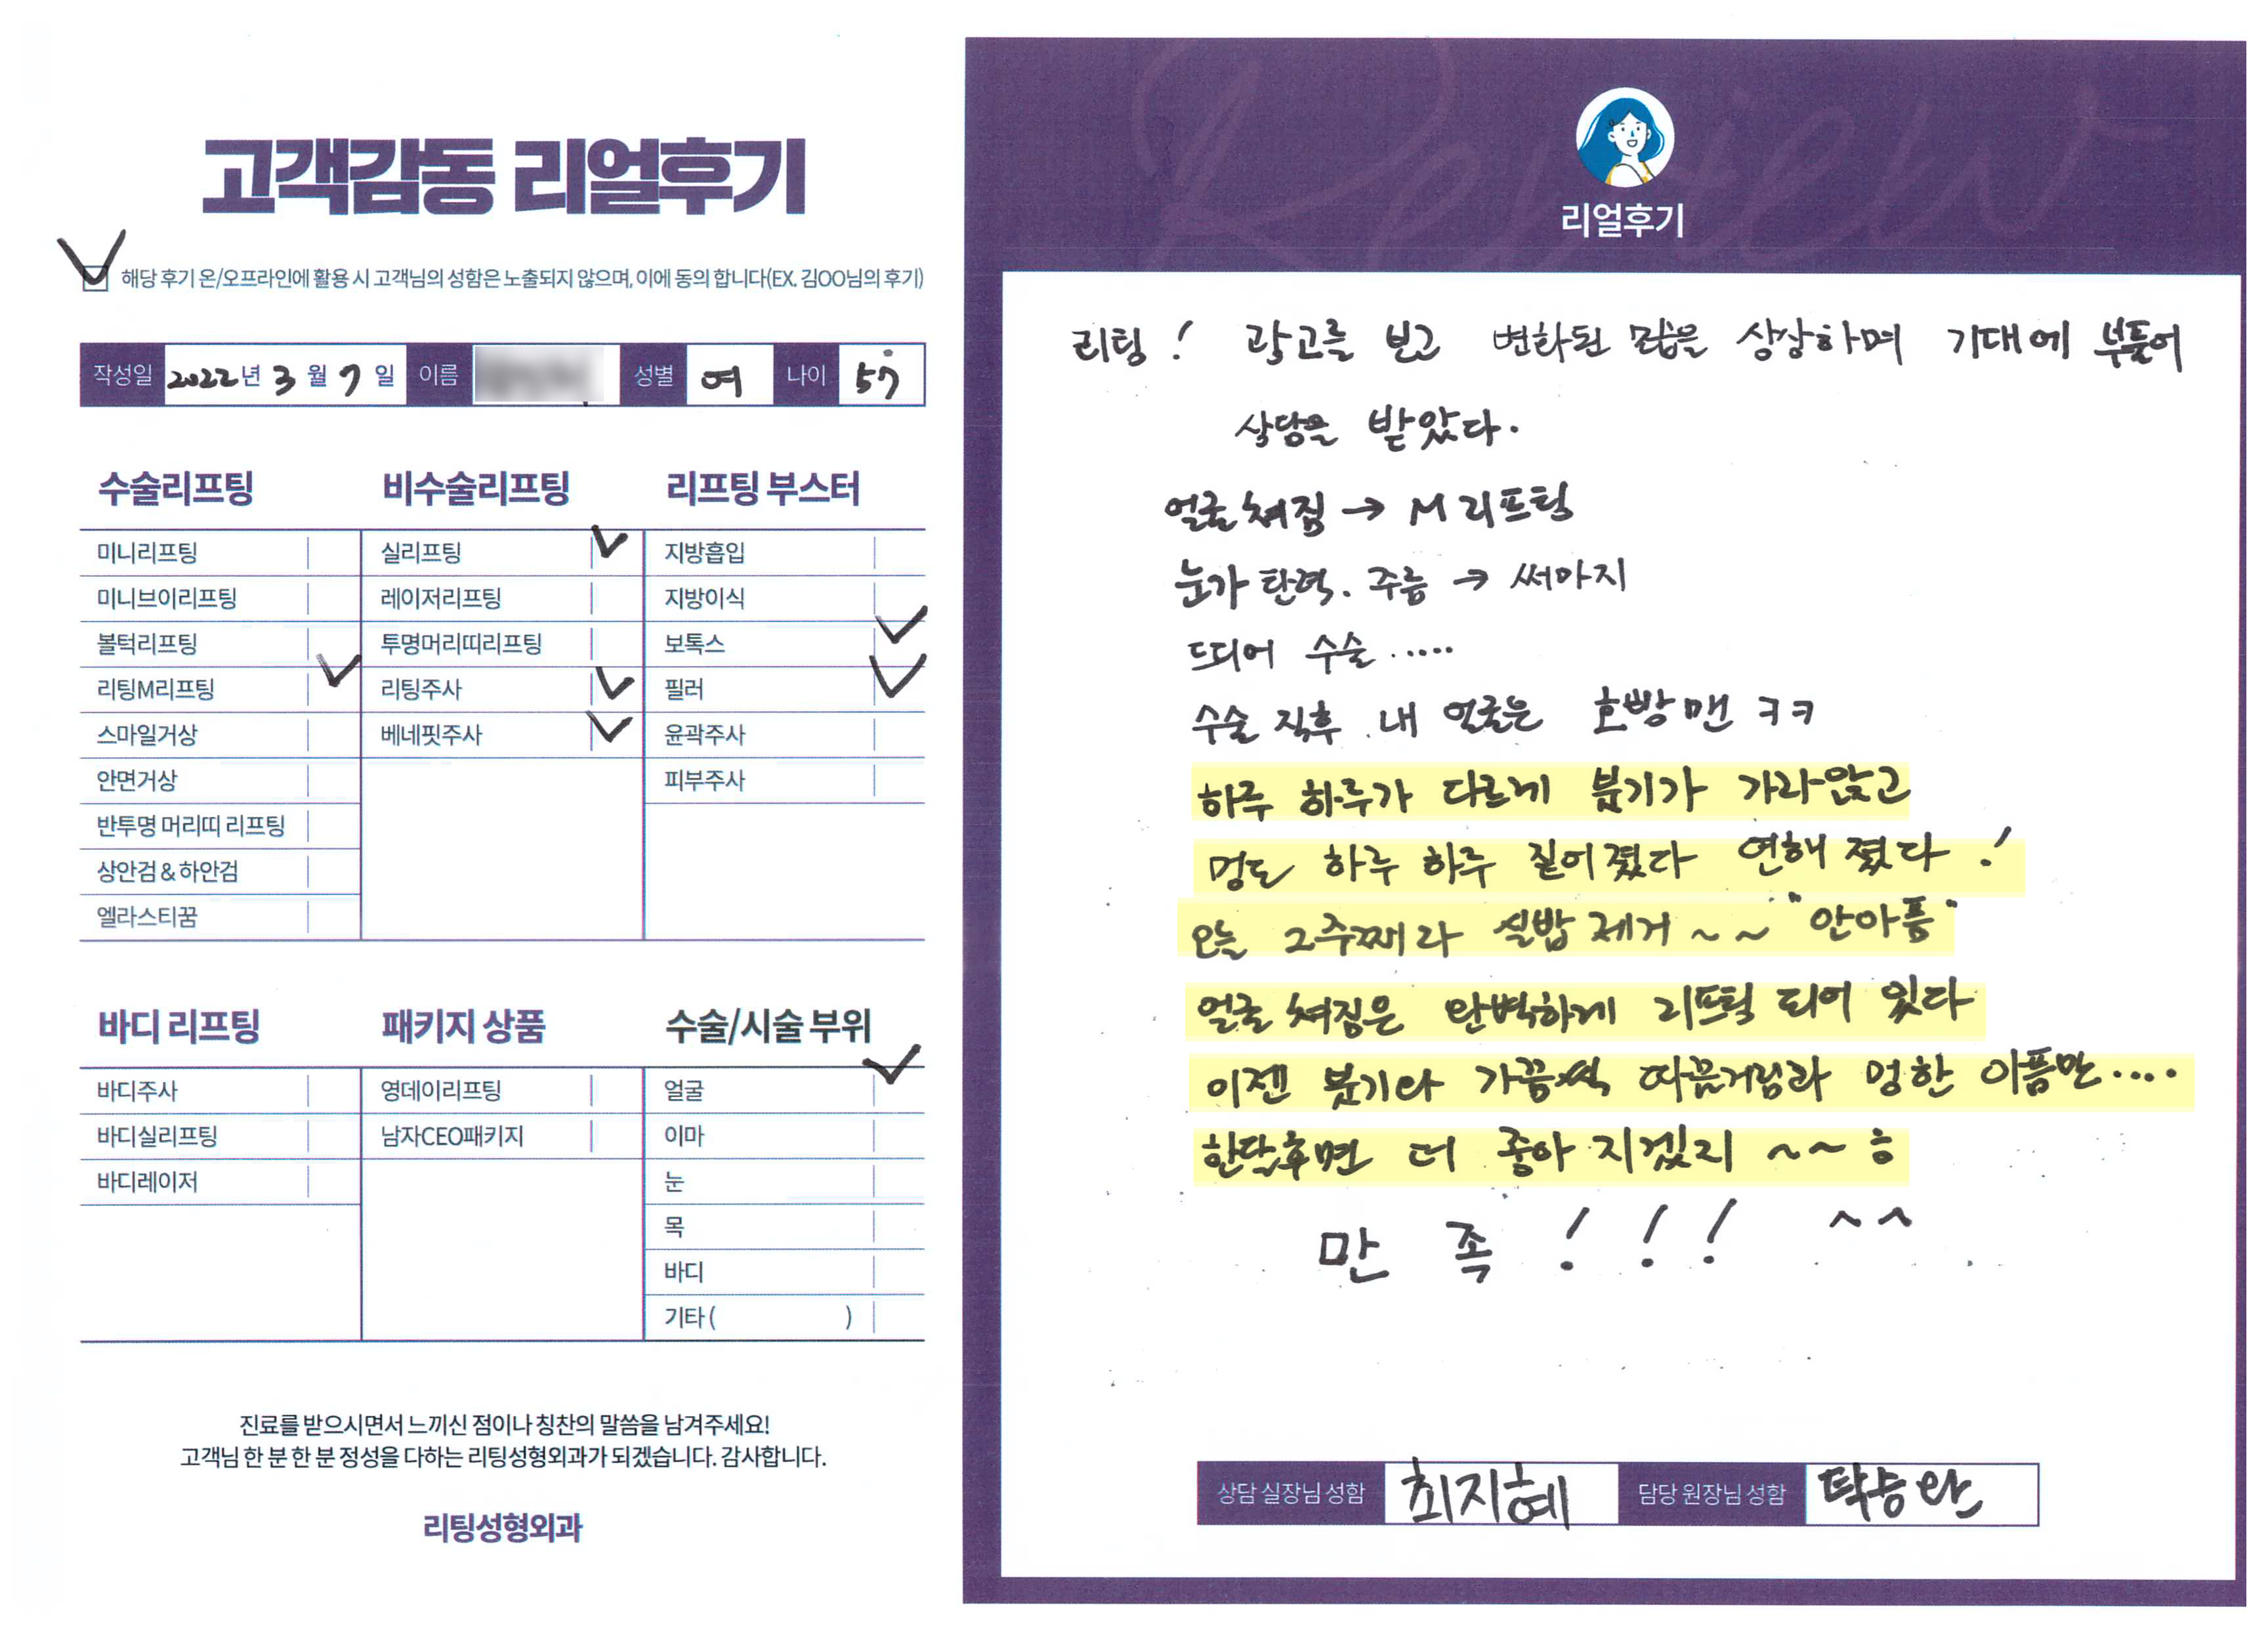 고객감동 리얼후기
해당 후기 온/오프라인에 활용 시 고객님의 성함은 노출되지 않으며, 이에 동의 합니다(EX. 김OO님의 후기)
작성일 2022년 3월 7일 이름 성별 여 나이 57
수술리프팅 비수술리프팅 리프팅 부스터
미니리프팅 실리프팅 지방흡입
미니브이리프팅 레이저리프팅 지방이식
볼턱리프팅 투명머리띠리프팅 보톡스
리팅M리프팅 리팅주사 필러
스마일거상 베네핏주사 윤곽주사
안면거상 피부주사
반투명 머리띠 리프팅
상안검 & 하안검
엘라스티꿈
바디 리프팅 패키지 상품 수술/시술 부위
바디주사 영데이리프팅 얼굴
바디실리프팅 남자CEO패키지 이마
바디레이저 눈
목
바디
기타 ( )
진료를 받으시면서 느끼신 점이나 칭찬의 말씀을 남겨주세요!
고객님 한 분 한 분 정성을 다하는 리팅성형외과가 되겠습니다. 감사합니다.
리팅성형외과
Review
리얼후기
리팅! 광고를 보고 변화된 모습을 상상하며 기대에 부틀어
상담을 받았다.
얼굴 쳐짐 → M 리프팅
눈가 탄력. 주름 → 써마지
드뎌어 수술.....
수술 직후 내 얼굴은 호빵맨 ㅋㅋ
하루 하루가 다르게 붓기가 가라앉고
멍도 하루 하루 짙어졌다 연해 졌다!
오늘 2주째라 실밥 제거 ~ ~ "안아픔"
얼굴 쳐짐은 완벽하게 리프팅 되어 있다
이젠 붓기와 가끔씩 따끔거림과 멍한 아픔만....
한달후면 더 좋아 지겠지 ~~ ㅎ
만 족 ! ! ! ^^
상담 실장님 성함 최지혜 담당 원장님 성함 탁승완